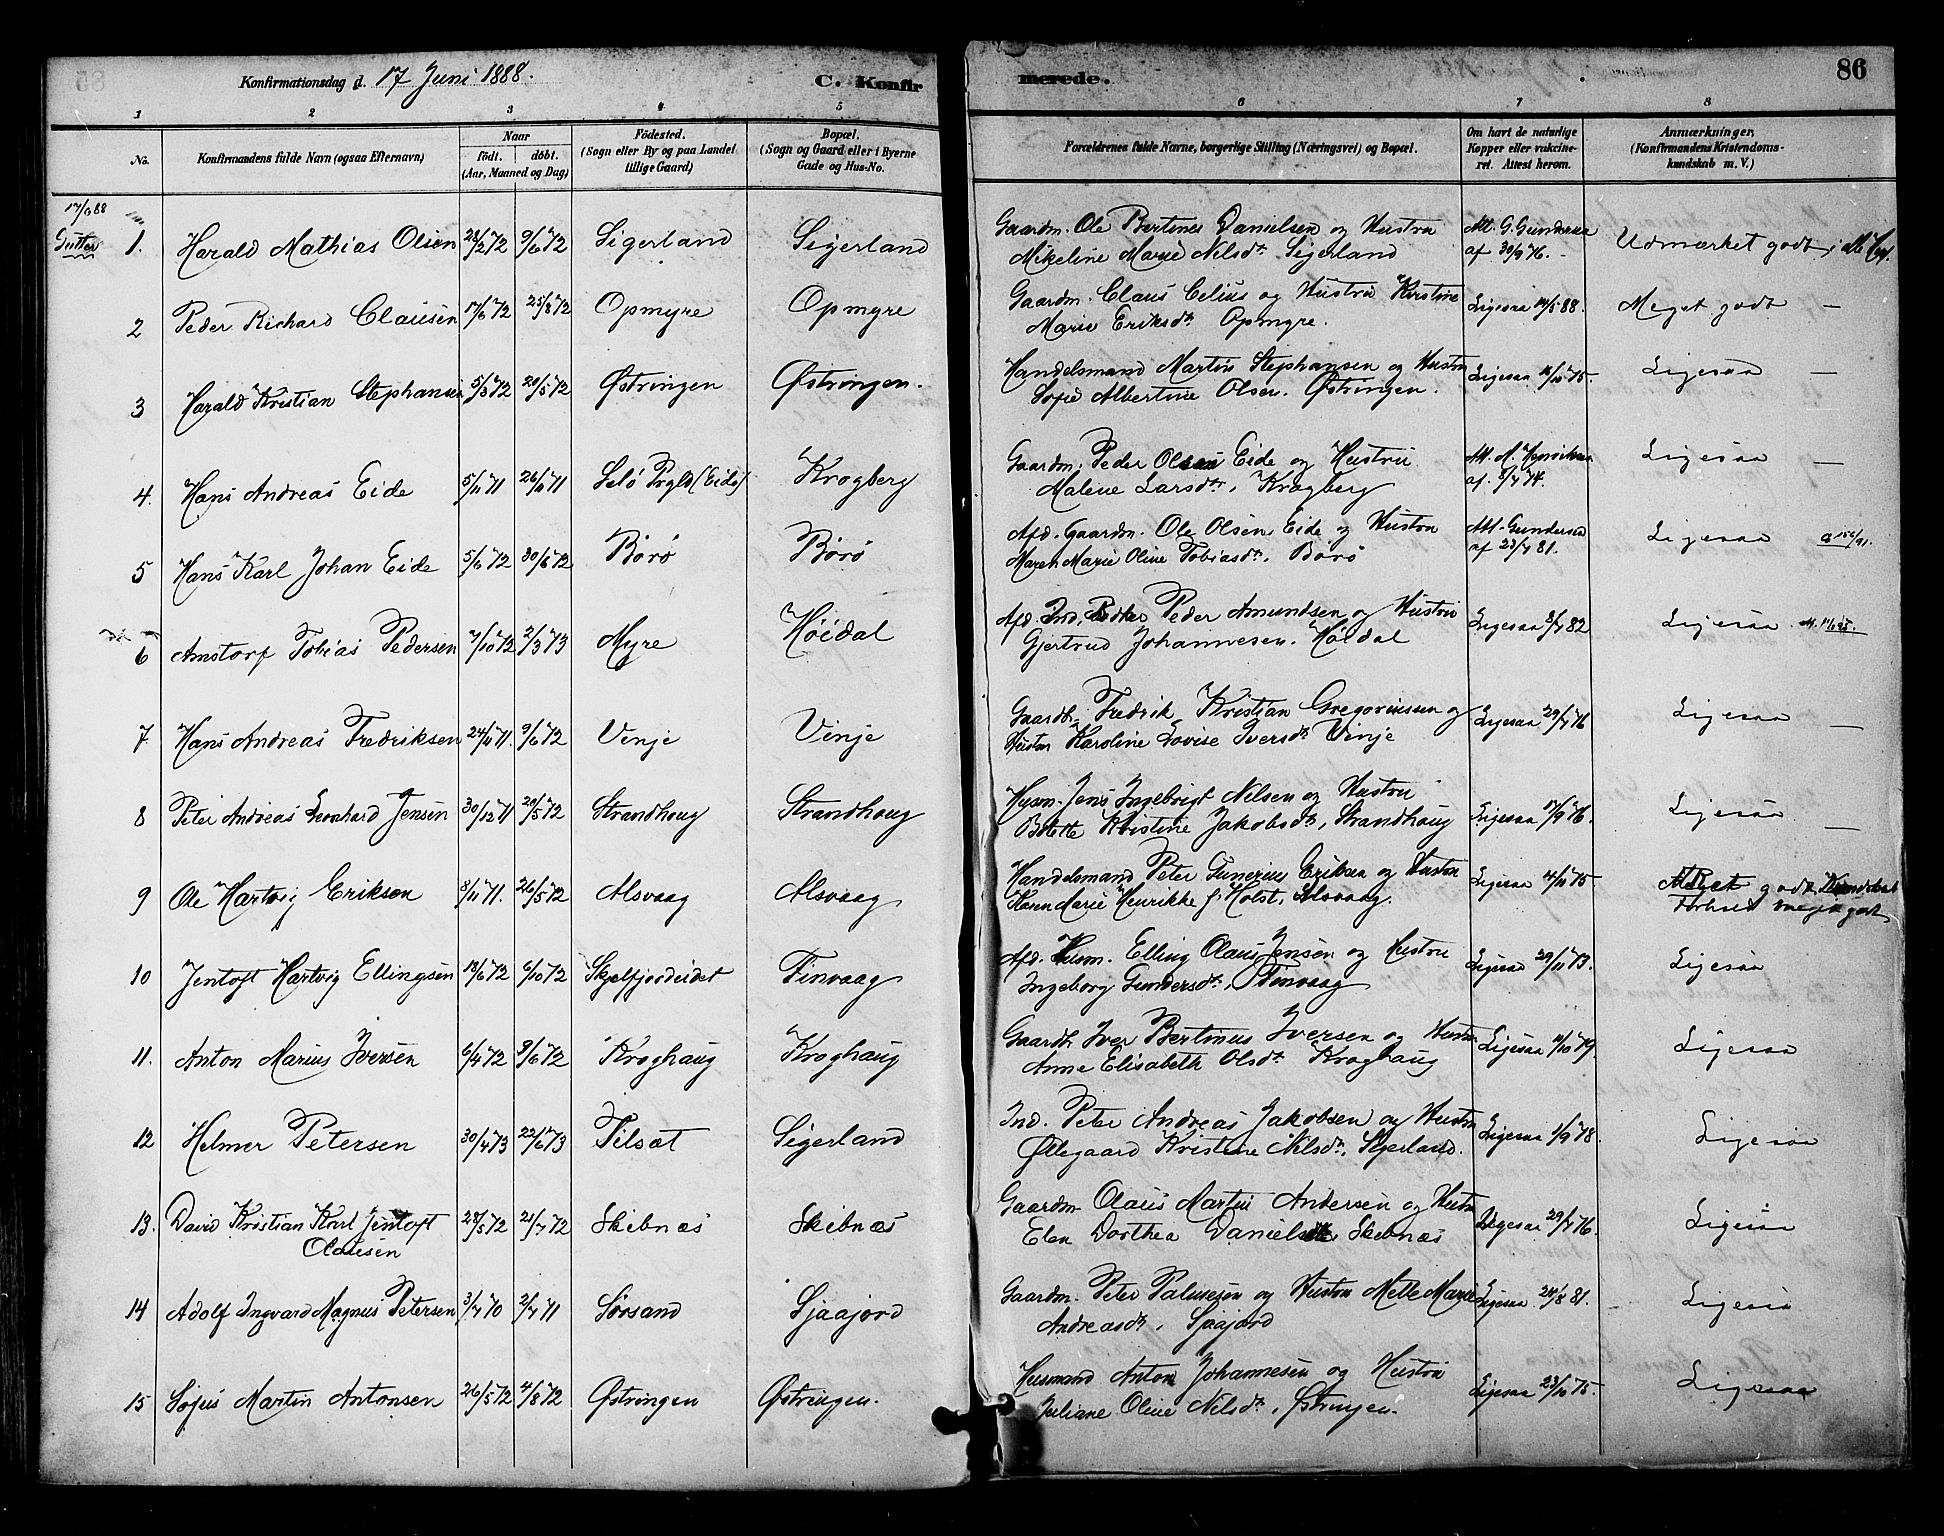 Konfirmationsdag d. 17 Juni 1888. C. Konfirmerede. 86
1 2 3 4 5 6 7 8
No. Konfirmandens fulde Navn (ogsaa Efternavn) Naar født. døbt. (Aar, Maaned og Dag) Fødested. (Sogn eller By og paa Landet tillige Gaard) Bopæl. (Sogn og Gaard eller i Byerne Gade og Hus-No. Forældrenes fulde Navne, borgerlige Stilling (Næringsvei) og Bopæl. Om havt de naturlige Kopper eller vaccineret. Attest herom. Anmærkninger, (Konfirmandens Kristendomskundskab m. V.)
17/6 88
Gutter 1. Harald Mathias Olsen 28/2 72 9/6 72 Sigerland Sigerland Gaardm. Ole Bertines Danielsen og Hustru Att. G. Gundersen Udmærket godt
Mikeline Marie Nilsdt. Sigerland af 30/9 76.
2 Peder Richard Clausen 17/6 72 25/8 72 Opmyre Opmyre Gaardm. Claus Celius og Hustru Kirstine Ligesaa 14/5 88. Meget godt —
Marie Eriksdt. Opmyre.
3 Harald Kristian Stephansen 5/3 72 20/5 72 Østringen Østringen. Handelsmand Martin Stephansen og Hustru Ligesaa 16/10 75. Ligesaa —
Sofie Albertine Olsen. Østringen.
4. Hans Andreas Eide 5/11 71 26/11 71 Selø Prgld (Eide) Krogberg Gaardm. Peder Olsen Eide og Hustru Att. Ligesaa —
Malene Larsdtr, Krogberg af. 8/4 74.
5 Hans Karl Johan Eide 5/6 72 30/6 72 Børø Børø Afd. Gaardm. Ole Olsen Eide og Hustru Att. Gundersen Ligesaa
Maren Marie Oline Tobiasdt. Børø af 23/7 81.
6 Arnstorf Tobias Pedersen 7/10 72 2/3 73 Myre Høidal Afd. Ind. Peder Amundsen og Hustru Ligesaa 3/7 82 Ligesaa
Gjertrud Johannesen. Høidal
7. Hans Andreas Fredriksen 24/11 71. 9/6 72 Vinje Vinje Gaardb. Fredrik Kristian Gregoriussen og Ligesaa 29/7 76 Ligesaa —
Hustru Karoline Lovise Iversdt. Vinje
8 Peter Andreas Leonhard Jensen 30/12 71 20/5 72 Strandhoug Strandhoug Husm. Jens Ingebrigt Nilsen og Hustru Ligesaa 17/9 76. Ligesaa —
Bolette Kristine Jakobsdt, Strandhaug
9 Ole Hartvig Eriksen 8/11 71. 26/5 72 Alsvaag Alsvaag Handelsmand Peter Tunerius Eriksen og Hustru Ligesaa 4/11 75 Meget godt Kundskab
Karen Marie Henrikke f. Holst, Alsvaag. Forhold meget godt
10 Jentoft Hartvig Ellingsen 18/6 72 6/10 72 Skjelfjordeidet Finvaag Afd. Husm. Elling Olaus Jensen og Hustru Ligesaa 29/11 73. Ligesaa
Ingeborg Gundersdt. Finvaag
11. Anton Marius Iversen 6/4 72 9/6 72 Kroghaug Kroghaug Gaardb. Iver Bertinus Iversen og Hustru Ligesaa 11/10 79. Ligesaa
Anne Elisabeth Olsdt. Kroghaug
12 Helmer Petersen 30/4 73 22/6 73 Tilsæt Sigerland Ind. Peter Andreas Jakobsen og Hustru Ligesaa 1/9 78. Ligesaa
Øllegaard Kristine Nilsdt, Sigerland.
13. David Kristian Karl Jentoft 28/5 72 21/7 72 Skibnæs Skibnæs Gaardm. Olaus Martin Andersen og Hustru Ligesaa 29/7 76. Ligesaa
Olausen Elen Dorthea Danielsdt. Skibnæs
14 Adolf Ingvard Magnus Petersen 3/7 70 2/7 71 Sørsand Sjaajord Gaardm. Peter Palmesen og Hustru Mette Marie Ligesaa 24/8 81. Ligesaa
Andreasdt, Sjaajord
15 Sofus Martin Antonsen 26/5 72 4/8 72 Østringen Østringen. Husmand Anton Johannesen og Hustru Ligesaa 23/10 75. Ligesaa
Juliane Oline Nilsdt, Østringen.